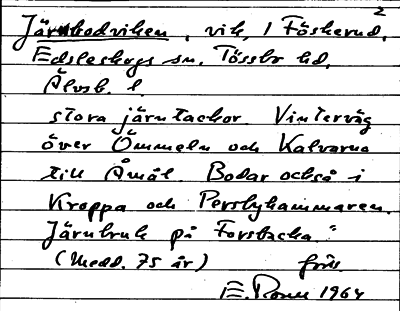 2
Järnbodviken, vik, 1 Föskerud,
Edsleskogs sn. Tössbo hd.
Älvsb. l.
stora järntackor. Vinterväg
över Ömmeln och Kalvarna
till Åmål. Bodar också i
Kroppa och Persbyhammaren.
Järnbruk på Forsbacka."
(Medd. 75 år)
E. 1964